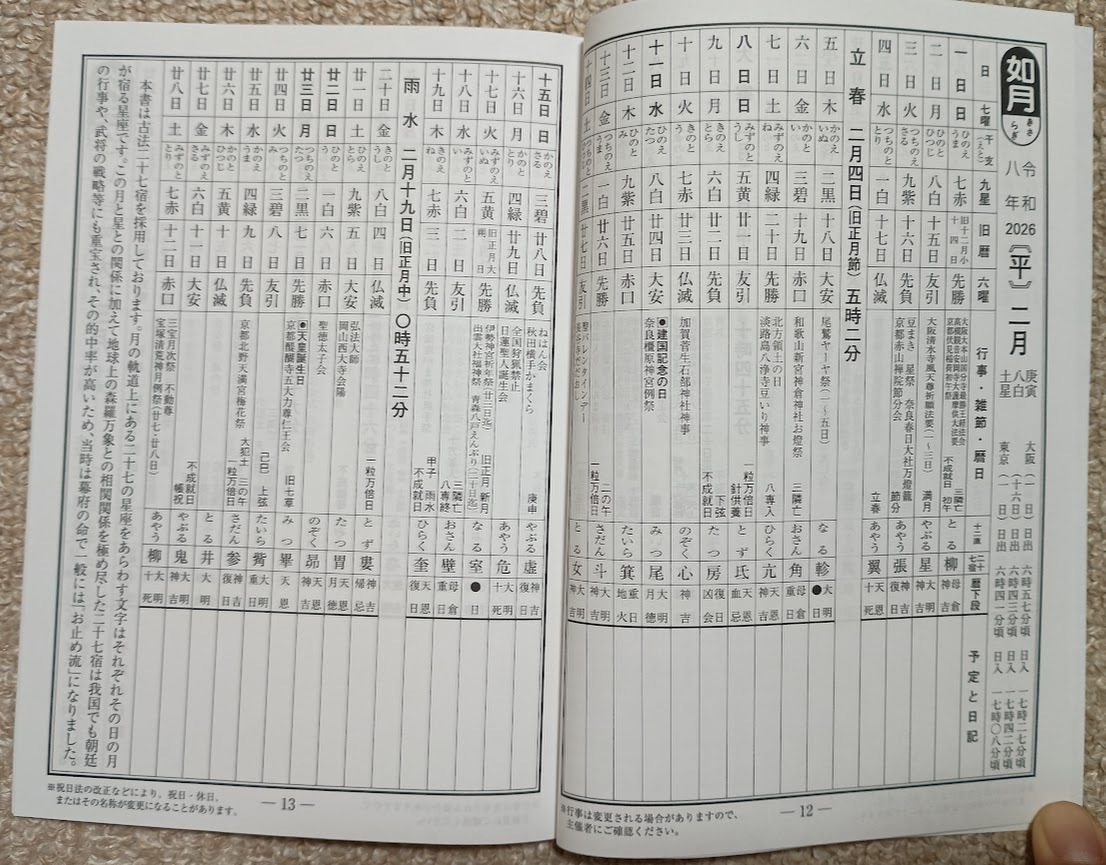 如月 きさらぎ 令和八年 2026 〔平〕 二月 庚寅 八白土星
大阪 (一日) 日出 六時五七分頃 日入 一七時二七分頃
(十六日) 日出 六時四三分頃 日入 一七時四二分頃
東京 (一日) 日出 六時四一分頃 日入 一七時〇八分頃
日 七曜 干支(えと) 九星 旧暦 六曜 行事・雑節・暦日 十二直 二十七宿 暦下段 予定と日記
一日 日 ひのえ うま 七赤 旧十二月小 十四日 先勝 三隣亡 不成就日 初午 とる 柳 母倉 神吉
二日 月 ひのと ひつじ 八白 十五日 友引 大阪清水寺風天尊祈願法要(一〜三日) 満月 やぶる 星 大明 神吉
三日 火 つちのえ さる 九紫 十六日 先負 豆まき 星祭 奈良春日大社万燈籠 京都赤山禅院節分会 節分 あやう 張 神吉 復日
四日 水 つちのと とり 一白 十七日 仏滅 立春 あやう 翼 天恩 十死
立春 二月四日(旧正月節) 五時二分
五日 木 かのえ いぬ 二黒 十八日 大安 尾鷲ヤーヤ祭(一〜五日) なる 軫 大明 ●日
六日 金 かのと い 三碧 十九日 赤口 和歌山新宮神倉神社お燈祭 三隣亡 おさん 角 母倉 重日
七日 土 みずのえ ね 四緑 二十日 先勝 北方領土の日 淡路島八浄寺豆いり神事 八専入 ひらく 亢 天恩 神吉
八日 日 みずのと うし 五黄 廿一日 友引 一粒万倍日 針供養 とず 氐 天恩 血忌
九日 月 きのえ とら 六白 廿二日 先負 下弦 不成就日 たつ 房 凶会 復日
十日 火 きのと う 七赤 廿三日 仏滅 加賀菅生石部神社神事 のぞく 心 神吉
十一日 水 ひのえ たつ 八白 廿四日 大安 ●建国記念の日 奈良橿原神宮例祭 みつ 尾 大明 月徳
十二日 木 ひのと み 九紫 廿五日 赤口 たいら 箕 重日 地火
十三日 金 つちのえ うま 一白 廿六日 先勝 二の午 一粒万倍日 さだん 斗 大明 神吉
十四日 土 つちのと 二黒 廿七日 友引 聖バレンタインデー とる 女 大明 神吉
※行事は変更される場合がありますので、
主催者にご確認ください。
— 12 —
十五日 日 かのえ さる 三碧 廿八日 先負 ねはん会 秋田横手かまくら 庚申 やぶる 虚 神吉 復日
十六日 月 かのと とり 四緑 廿九日 仏滅 全国狩猟禁止 日蓮聖人誕生会 あやう 危 大明 十死
十七日 火 みずのえ いぬ 五黄 旧正月大 朔日 先勝 伊勢神宮祈年祭(廿三日迄) 旧正月 新月 出雲大社福神祭 青森八戸えんぶり(二十日迄) なる 室 ●日
十八日 水 みずのと い 六白 二日 友引 三隣亡 八専終 おさん 壁 母倉 重日
十九日 木 きのえ ね 七赤 三日 先負 甲子 雨水 不成就日 ひらく 奎 天恩 復日
雨水 二月十九日(旧正月中) 〇時五十二分
二十日 金 きのと うし 八白 四日 仏滅 一粒万倍日 とず 婁 神吉 帰忌
廿一日 土 ひのえ とら 九紫 五日 大安 弘法大師 岡山西大寺会陽 たつ 胃 天恩 月徳
廿二日 日 ひのと う 一白 六日 赤口 聖徳太子会 のぞく 昴 天恩 神吉
廿三日 月 つちのえ たつ 二黒 七日 先勝 ●天皇誕生日 京都醍醐寺五大力尊仁王会 旧七草 みつ 畢 天恩
廿四日 火 つちのと み 三碧 八日 友引 己巳 上弦 たいら 觜 大明 重日
廿五日 水 かのえ うま 四緑 九日 先負 京都北野天満宮梅花祭 大犯土 三の午 一粒万倍日 さだん 参 神吉 復日
廿六日 木 かのと ひつじ 五黄 十日 仏滅 とる 井 大明
廿七日 金 みずのえ さる 六白 十一日 大安 不成就日 やぶる 鬼 大明 神吉
廿八日 土 みずのと とり 七赤 十二日 赤口 三宝月次祭 不動尊 宝塚清荒神月例祭(廿七・廿八日) 帳祝 あやう 柳 大明 十死
本書は古法二十七宿を採用しております。月の軌道上にある二十七の星座をあらわす文字はそれぞれその日の月
が宿る星座です。この月と星との関係に加えて地球上の森羅万象との相関関係を極め尽した二十七宿は我国でも朝廷
の行事や、武将の戦略等にも重宝され、その的中率が高いため、当時は幕府の命で一般には「お止め流」になりました。
※祝日法の改正などにより、祝日・休日、
またはその名称が変更になることがあります。
— 13 —